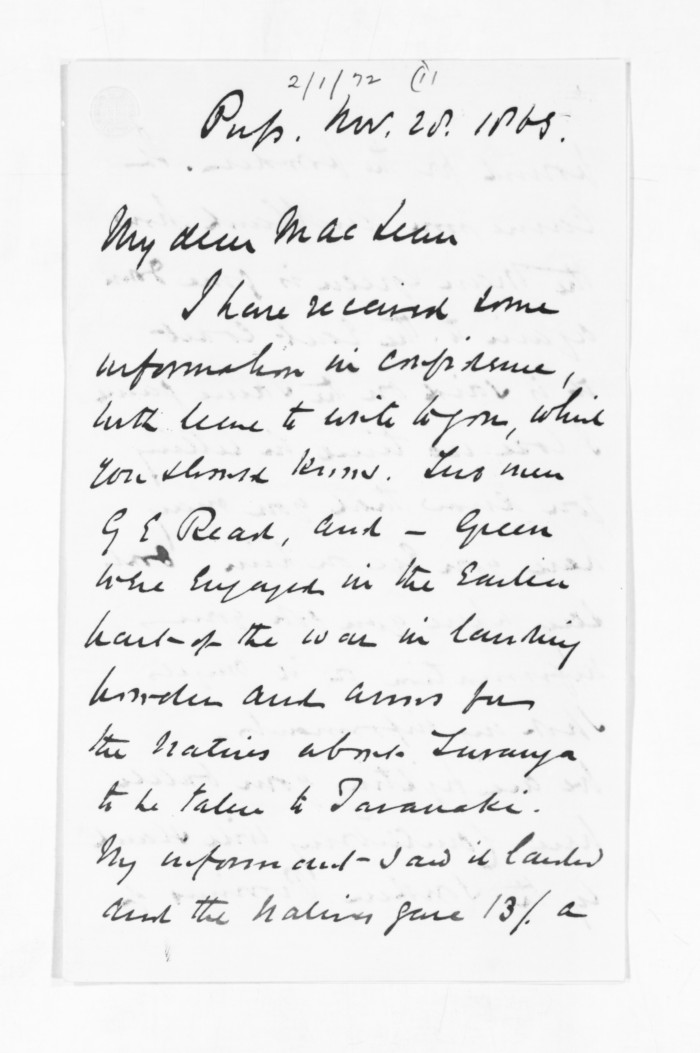 2/1/72 (1)
Nov. 28. 1865.
My dear MacLean
I have received some
information in confidence,
with leave to write to you, which
you should know. Two men
G E Read, and – Green
were engaged in the Earlier
part of the war in landing
powder and arms for
the Natives about Turanga
to be taken to Taranaki.
My informant saw it landed
and the Natives gave 13/. a